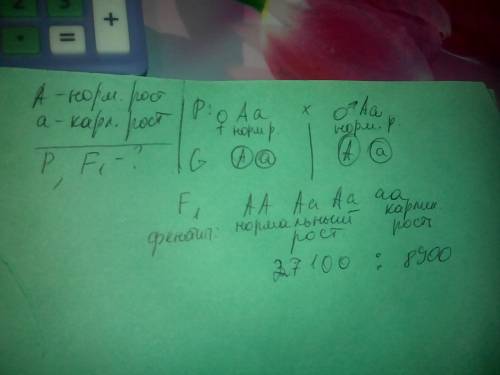 А - норм. рост
а - карл. рост
P, F₁ - ?
P: ♀ Aa × ♂ Aa
норм. р. норм. р.
G (A) (a) | (A) (a)
F₁ AA Aa Aa aa
фенотип: нормальный рост карлик. рост
27100 : 8900